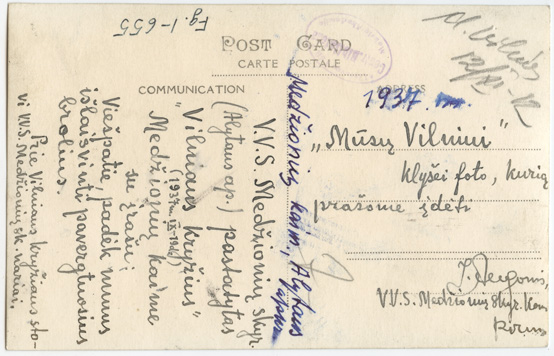 Fg. 1-655
POST CARD
CARTE POSTALE
COMMUNICATION
ADDRESS
1937 m.
"Mūsų Vilniui"
klyšei foto, kurią
prašome įdėti
V.V.S. Medžionių skyr. kom.
Medžionių kaim, Alytaus
apskr
V.V.S. Medžionių skyr.
(Alytaus ap.) pastatytas
"Vilniaus kryžius"
(1937 m. IX-19 d.)
Medžionių kaime
su įrašu:
Viešpatie, padėk mums
išlaisvinti pavergtuosius
brolius.
Prie Vilniaus kryžiaus sto-
vi V.V.S. Medžionių sk. nariai.